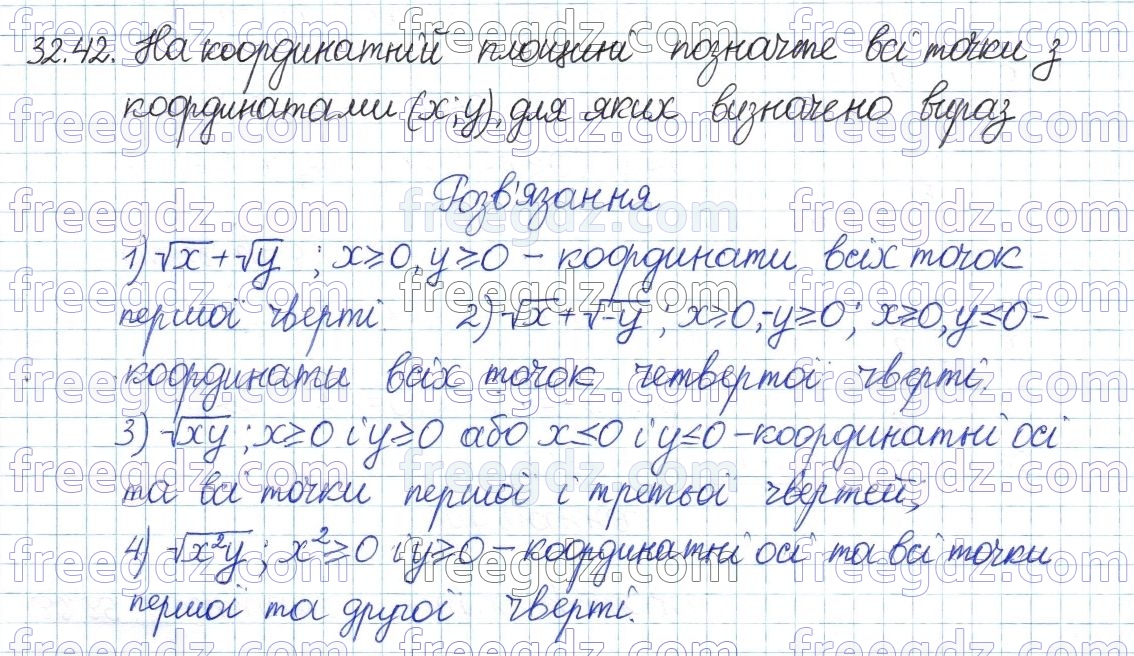 32.42. На координатній площині позначте всі точки з
координатами (x; y), для яких визначено вираз
Розв'язання
1) √x + √y ; x ≥ 0, y ≥ 0 – координати всіх точок
першої чверті. 2) √x + √-y ; x ≥ 0, -y ≥ 0 ; x ≥ 0, y ≤ 0 –
координати всіх точок четвертої чверті.
3) √xy ; x ≥ 0 і y ≥ 0 або x ≤ 0 і y ≤ 0 – координатні осі
та всі точки першої і третьої чвертей;
4) √x²y ; x² ≥ 0 і y ≥ 0 – координатні осі та всі точки
першої та другої чверті.
freegdz.com